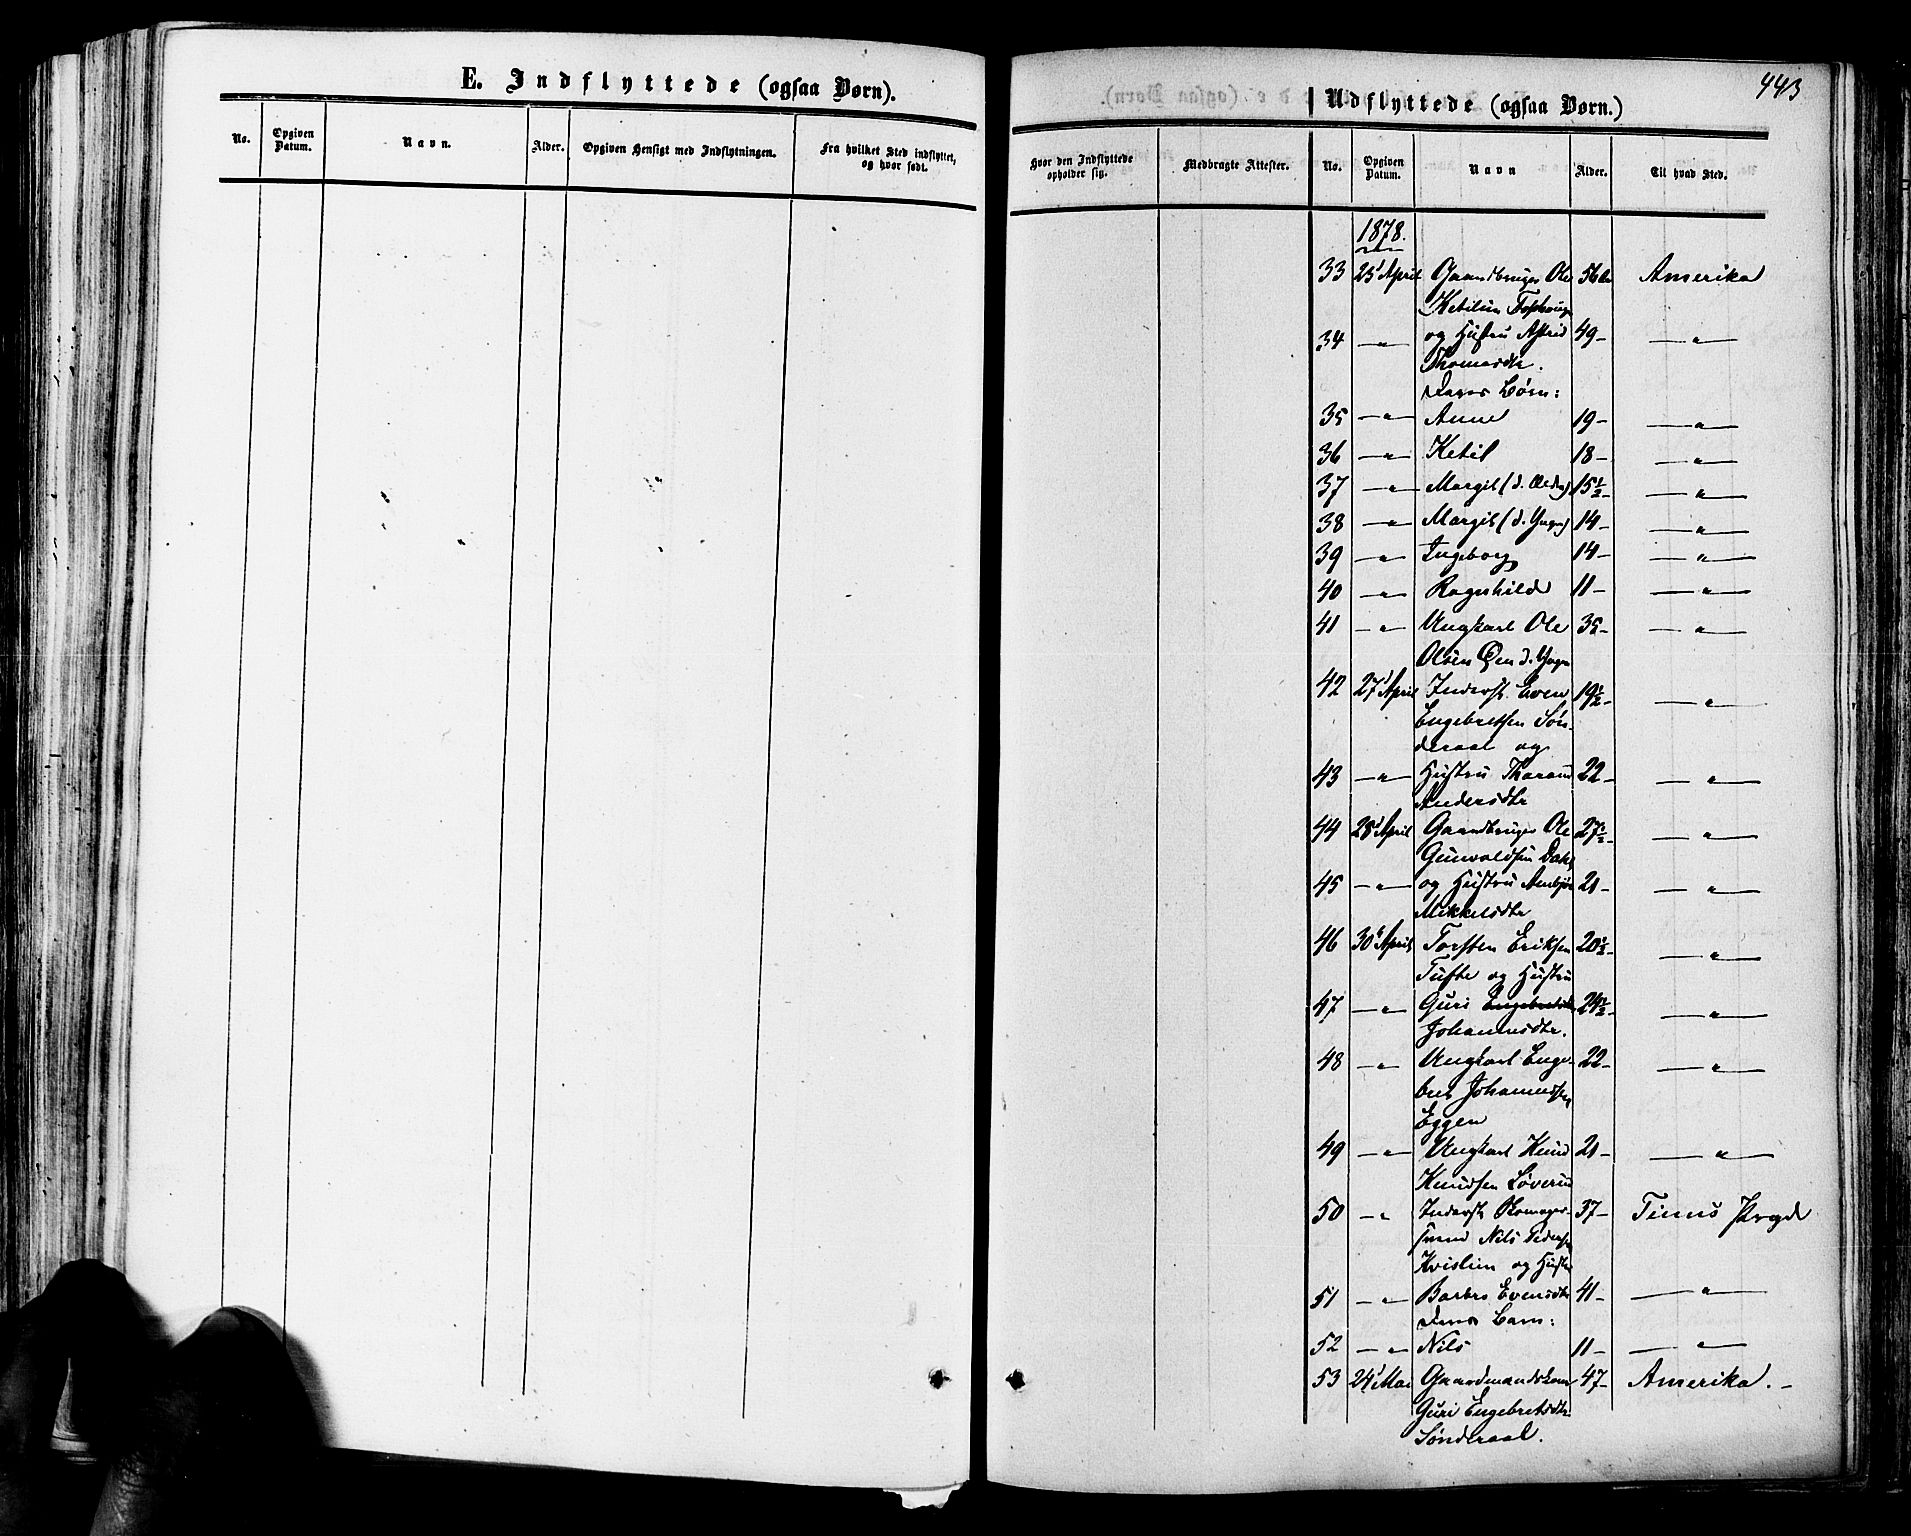 E. Indflyttede (ogsaa Børn).
No.
Opgiven Datum.
Navn.
Alder.
Opgiven Hensigt med Indflytningen.
Fra hvilket Sted indflyttet, og hvor født.
443
Udflyttede (ogsaa Børn.)
Hvor den Indflyttede opholder sig.
Medbragte Attester.
No.
Opgiven Datum.
Navn
Alder.
Til hvad Sted.
1878.
33 25' April Gaardbruger Ole 56 Amerika
Ketilsen
34 —„— og Hustru Astrid 49- —„—
Thomasdtr.
deres Børn:
35 —„— Anne 19- —„—
36 —„— Ketil 18- —„—
37 —„— Margit (d. Ældre) 15½- —„—
38 —„— Margit (d. Yngre) 14- —„—
39 —„— Ingeborg 14- —„—
40 —„— Ragnhild 11- —„—
41 —„— Ungkarl Ole 35- —„—
Olsen Øen d. Yngre
42 27' April Inderst. Even 19½- —„—
Engebretsen Søn-
deraal og
43 —„— Hustru Thorand 22- —„—
Andersdtr
44 28' April Gaardbruger Ole 27½- —„—
Gunvaldsen Dahl
45 —„— og Hustru Annbjør 21- —„—
Mikkelsdtr
46 30' April Torsten Eriksen 20½- —„—
Tufte og Hustru
47 —„— Guri Engebretsdtr 24½- —„—
Johannesdtr.
48 —„— Ungkarl Enge- 22- —„—
bret Johannessen
Eggen
49 —„— Ungkarl Knud 21- —„—
Knudsen Løverud
50 —„— Inderst Skomager- 37- Tinns Prgd
svend Nils Pedersen
og Hustru
51 —„— Barbro Evensdtr 41- —„—
deres Barn:
52 —„— Nils 11- —„—
53 24' Mai Gaardmandskone 47- Amerika. -
Guri Engebretsdtr
Sønderaal.